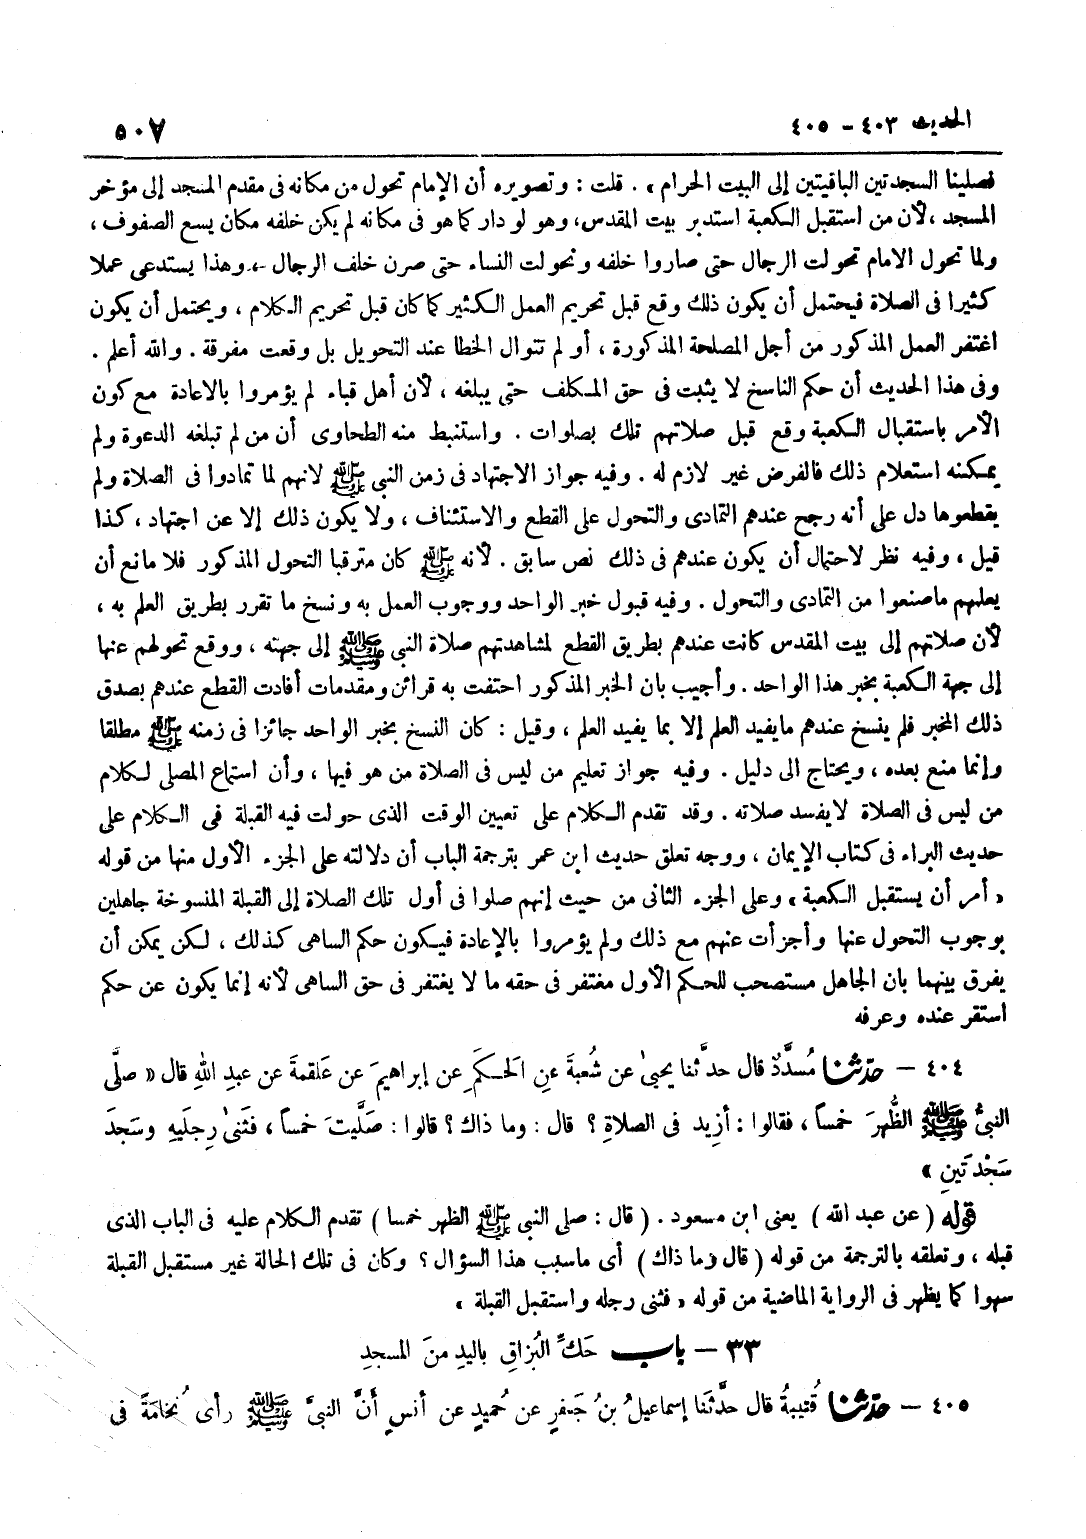 الحديث ٤٠٣ - ٤٠٥
٥٠٧
فصلينا السجدتين الباقيتين إلى البيت الحرام » . قلت : وتصويره أن الإمام تحول من مكانه فى مقدم المسجد إلى مؤخر
المسجد ، لأن من استقبل الكعبة استدبر بيت المقدس، وهو لو دار كما هو فى مكانه لم يكن خلفه مكان يسع الصفوف ،
ولما تحول الامام تحولت الرجال حتى صاروا خلفه وتحولت النساء حتى صرن خلف الرجال ، وهذا يستدعى عملا
كثيرا فى الصلاة فيحتمل أن يكون ذلك وقع قبل تحريم العمل الكثير كما كان قبل تحريم الكلام ، ويحتمل أن يكون
اغتفر العمل المذكور من أجل المصلحة المذكورة ، أو لم تتوال الخطا عند التحويل بل وقعت مفرقة . والله أعلم .
وفى هذا الحديث أن حكم الناسخ لا يثبت فى حق المكلف حتى يبلغه ، لأن أهل قباء لم يؤمروا بالاعادة مع كون
الأمر باستقبال الكعبة وقع قبل صلاتهم تلك بصلوات . واستنبط منه الطحاوى أن من لم تبلغه الدعوة ولم
يمكنه استعلام ذلك فالفرض غير لازم له . وفيه جواز الاجتهاد فى زمن النبى ﷺ لانهم لما تمادوا فى الصلاة ولم
يقطعوها دل على أنه رجح عندهم التمادى والتحول على القطع والاستئناف ، ولا يكون ذلك إلا عن اجتهاد ، كذا
قيل ، وفيه نظر لاحتمال أن يكون عندهم فى ذلك نص سابق . لأنه ﷺ كان مترقبا التحول المذكور فلا مانع أن
يعلهم ماصنعوا من التمادى والتحول . وفيه قبول خبر الواحد ووجوب العمل به ونسخ ما تقرر بطريق العلم به ،
لأن صلاتهم إلى بيت المقدس كانت عندهم بطريق القطع لمشاهدتهم صلاة النبى ﷺ إلى جهته ، ووقع تحولهم عنها
إلى جهة الكعبة بخبر هذا الواحد . وأجيب بان الخبر المذكور احتفت به قرائن ومقدمات أفادت القطع عندهم بصدق
ذلك المخبر فلم ينسخ عندهم مايفيد العلم إلا بما يفيد العلم ، وقيل : كان النسخ بخبر الواحد جائزا فى زمنه ﷺ مطلقا
وإنما منع بعده ، ويحتاج الى دليل . وفيه جواز تعليم من ليس فى الصلاة من هو فيها ، وأن استماع المصلى لكلام
من ليس فى الصلاة لايفسد صلاته . وقد تقدم الكلام على تعيين الوقت الذى حولت فيه القبلة فى الكلام على
حديث البراء فى كتاب الإيمان ، ووجه تعلق حديث ابن عمر بترجمة الباب أن دلالته على الجزء الأول منها من قوله
« أمر أن يستقبل الكعبة » وعلى الجزء الثانى من حيث إنهم صلوا فى أول تلك الصلاة إلى القبلة المنسوخة جاهلين
بوجوب التحول عنها وأجزأت عنهم مع ذلك ولم يؤمروا بالإعادة فيكون حكم الساهى كذلك ، لكن يمكن أن
يفرق بينهما بان الجاهل مستصحب للحكم الأول مغتفر فى حقه ما لا يغتفر فى حق الساهى لأنه إنما يكون عن حكم
استقر عنده وعرفه
٤٠٤ - حدّثنا مُسدَّدٌ قال حدَّثنا يحيىٰ عن شُعبةَ عنِ الحَكَمِ عن إبراهيمَ عن عَلقمةَ عن عبدِ اللهِ قال « صلَّى
النبىُّ ﷺ الظُّهرَ خمساً ، فقالوا : أزِيدَ فى الصلاةِ ؟ قال : وما ذاكَ ؟ قالوا : صَلَّيتَ خمساً ، فثَنىٰ رِجلَيهِ وسَجدَ
سَجْدتَينِ »
قوله ( عن عبد الله ) يعنى ابن مسعود . ( قال : صلى النبى ﷺ الظهر خمسا ) تقدم الكلام عليه فى الباب الذى
قبله ، وتعلقه بالترجمة من قوله ( قال وما ذاك ) أى ماسبب هذا السؤال ؟ وكان فى تلك الحالة غير مستقبل القبلة
سهوا كما يظهر فى الرواية الماضية من قوله « فثنى رجله واستقبل القبلة »
٣٣ - باب حَكِّ البُزاقِ باليدِ منَ المسجدِ
٤٠٥ - حدّثنا قُتيبةُ قال حدَّثَنا إسماعيلُ بنُ جَعفرٍ عن حُميدٍ عن أنسٍ أنَّ النبىَّ ﷺ رأى نُخامَةً فى